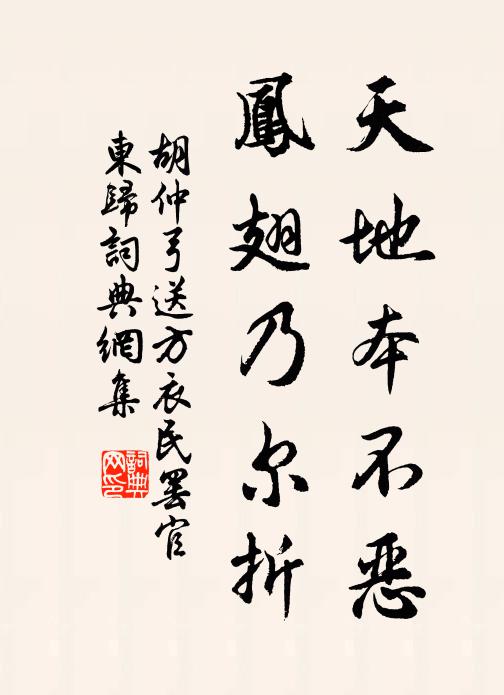 天地本不恶
鳳翅乃尔折
胡仲弓送方衣民罢官
東歸詞典網集
詞典网印